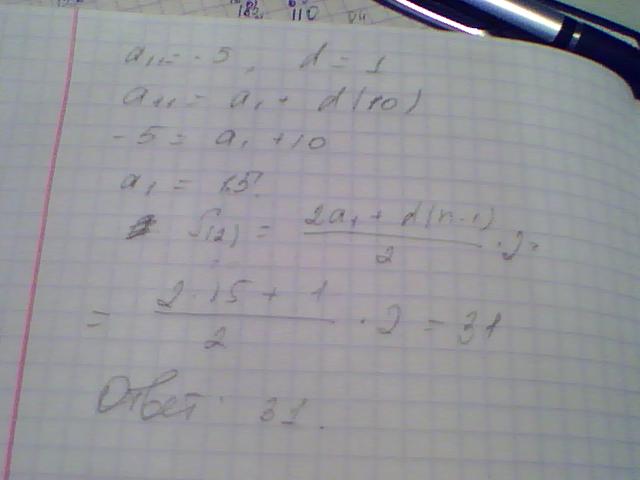 110 04
a₁₁ = -5, d = 1
a₁₁ = a₁ + d(10)
-5 = a₁ + 10
a₁ = 15.
S(2) = (2a₁ + d(n-1))/2 · 2 =
= (2·15 + 1)/2 · 2 = 31
Ответ: 31.